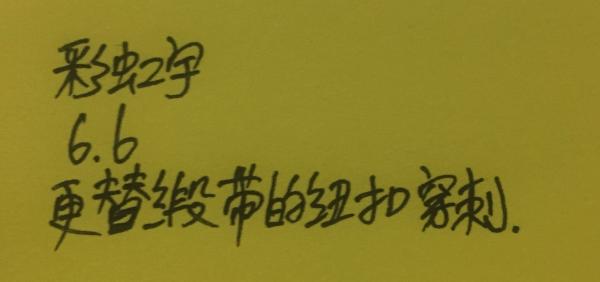 彩虹宇
6.6
更替缎带的纽扣穿刺.